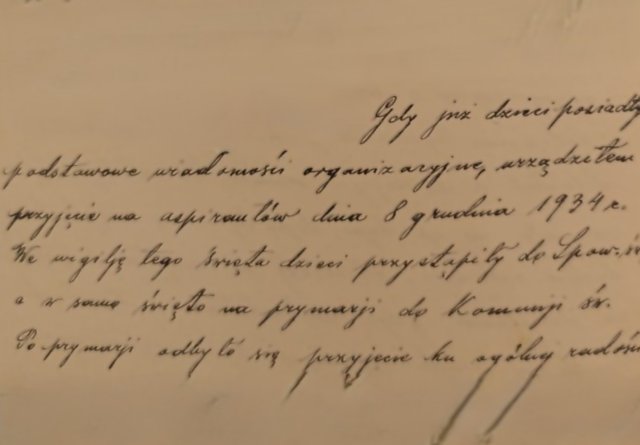 Gdy już dzieci posiadły
podstawowe wiadomości organizacyjne, urządziłem
przyjęcie na aspirantów dnia 8 grudnia 1934 r.
We wigilję tego święta dzieci przystąpiły do Spow. św
a w samo święto na prymarji do Komunji św.
Po prymarji odbyło się przyjęcie ku ogólnej radości